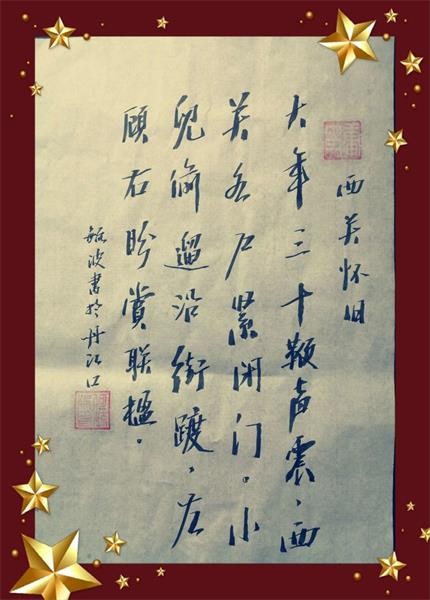 西关怀旧
大年三十鞭声震、西
关各户緊闭门。小
兒偷遛沿街踱、左
顾右盼赏联楹。
敏波書於丹江口